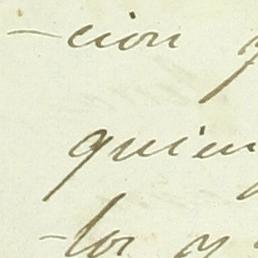 -cion
quien
-los y